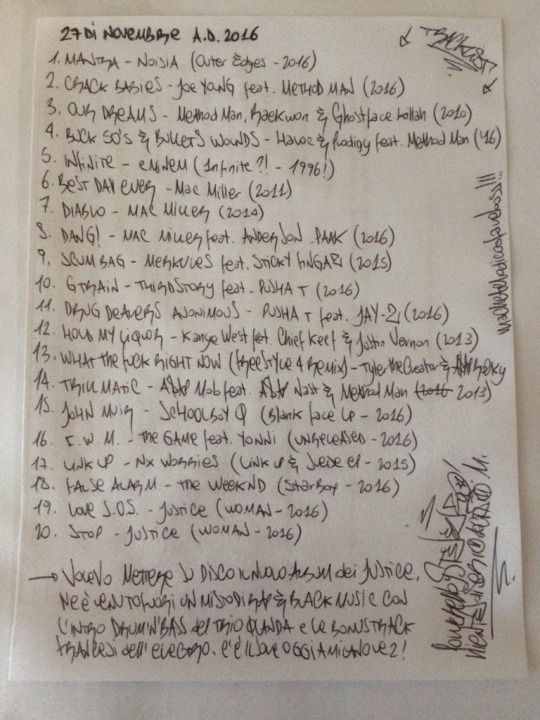 27 DI NOVEMBRE A.D. 2016
TRACKLIST
1. MANTRA - NOISIA (Outer Edges - 2016)
2. CRACK BABIES - Joe YOUNG feat. METHOD MAN (2016)
3. OUR DREAMS - Method Man, Raekwon & Ghostface Killah (2010)
4. BUCK 50'S & BULLETS WOUNDS - Havoc & Prodigy feat. Method Man ('16)
5. INFINITE - EMINEM (Infinite ?! - 1996!)
6. BEST DAY EVER - MAC MILLER (2011)
7. DIABLO - MAC MILLER (2014)
8. DANG! - MAC MILLER feat. ANDERSON .PAAK (2016)
9. SCUMBAG - MERKULES feat. STICKY FINGAZ (2015)
10. G TRAIN - THIRDSTORY feat. PUSHA T (2016)
11. DRUG DEALERS ANONIMOUS - PUSHA T feat. JAY-Z (2016)
12. HOLD MY LIQUOR - Kanye West feat. Chief Keef & Justin Vernon (2013)
13. WHAT THE FUCK RIGHT NOW (FREESTYLE & REMIX) - Tyler The Creator & A$AP Rocky
14. TRILLMATIC - A$AP Mob feat. A$AP Nast & Method Man (2016 2013)
15. JOHN MUIR - SCHOOLBOY Q (Blank face LP - 2016)
16. F.W.M. - THE GAME feat. YONNI (UNRELEASED - 2016)
17. LINK UP - NX WORRIES (LINK UP & SUEDE EP - 2015)
18. FALSE ALARM - the WEEKND (STARBOY - 2016)
19. LOVE S.O.S. - JUSTICE (WOMAN - 2016)
20. STOP - JUSTICE (WOMAN - 2016)
→ VOLEVO METTERE SU DISCO IL NUOVO ALBUM dei JUSTICE,
NE È VENUTO FUORI UN MISTO DI RAP & BLACK MUSIC CON
L'INTRO DRUM'N'BASS del TRIO OLANDA e le BONUSTRACK
FRANCESI dell'ELECTRO. C'È IL LOVE OGGI AMICA NOVE 2!